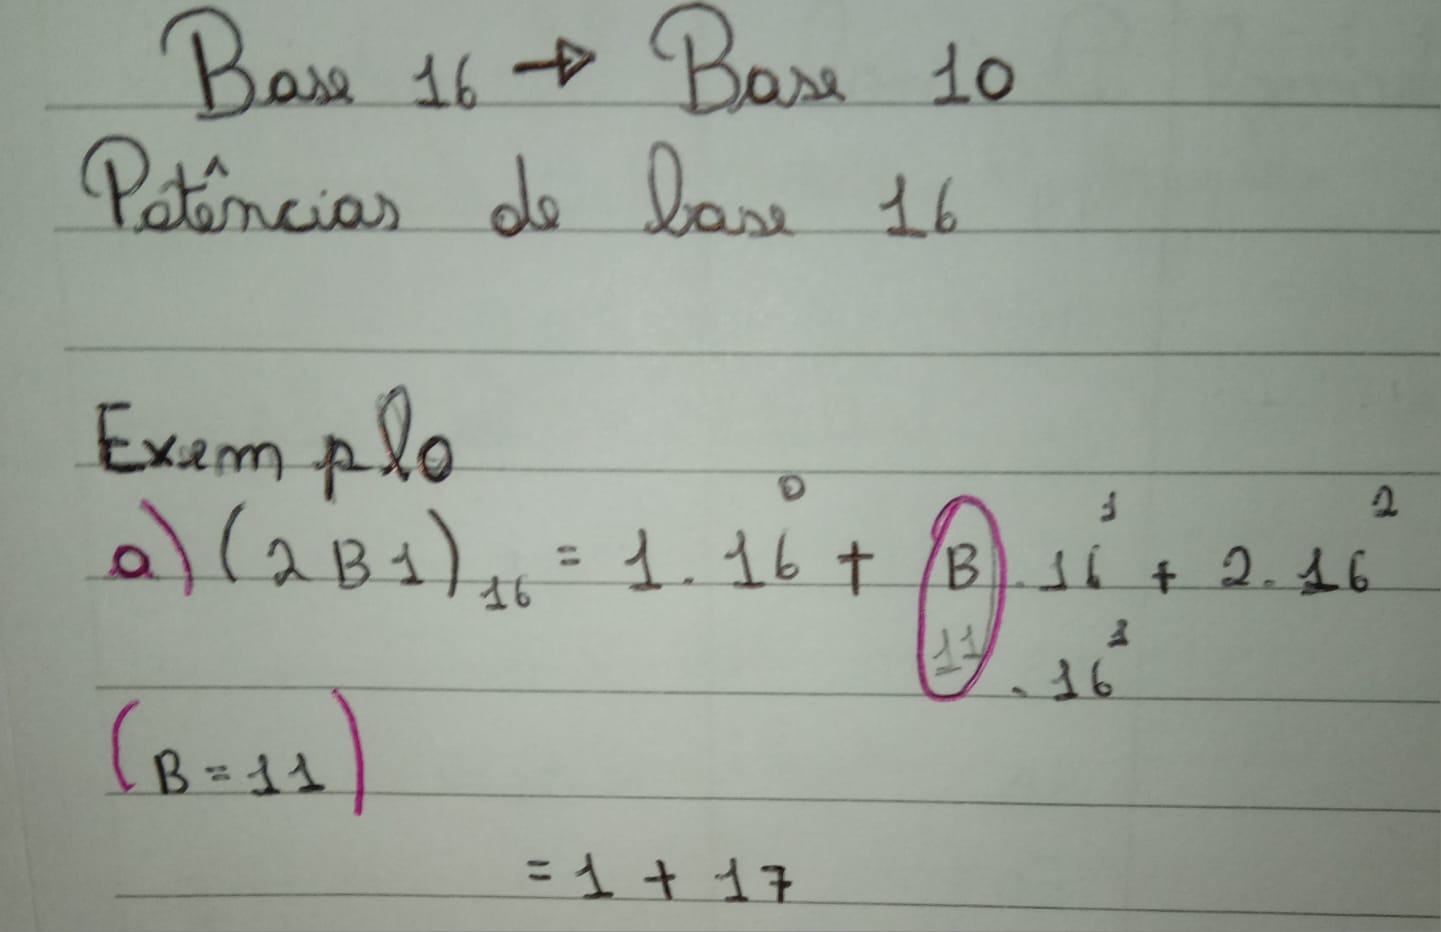 Base 16 → Base 10
Potências de base 16
Exemplo
a) (2B1)₁₆ = 1.16⁰ + B.16¹ + 2.16²
11.16¹
(B=11)
= 1 + 17